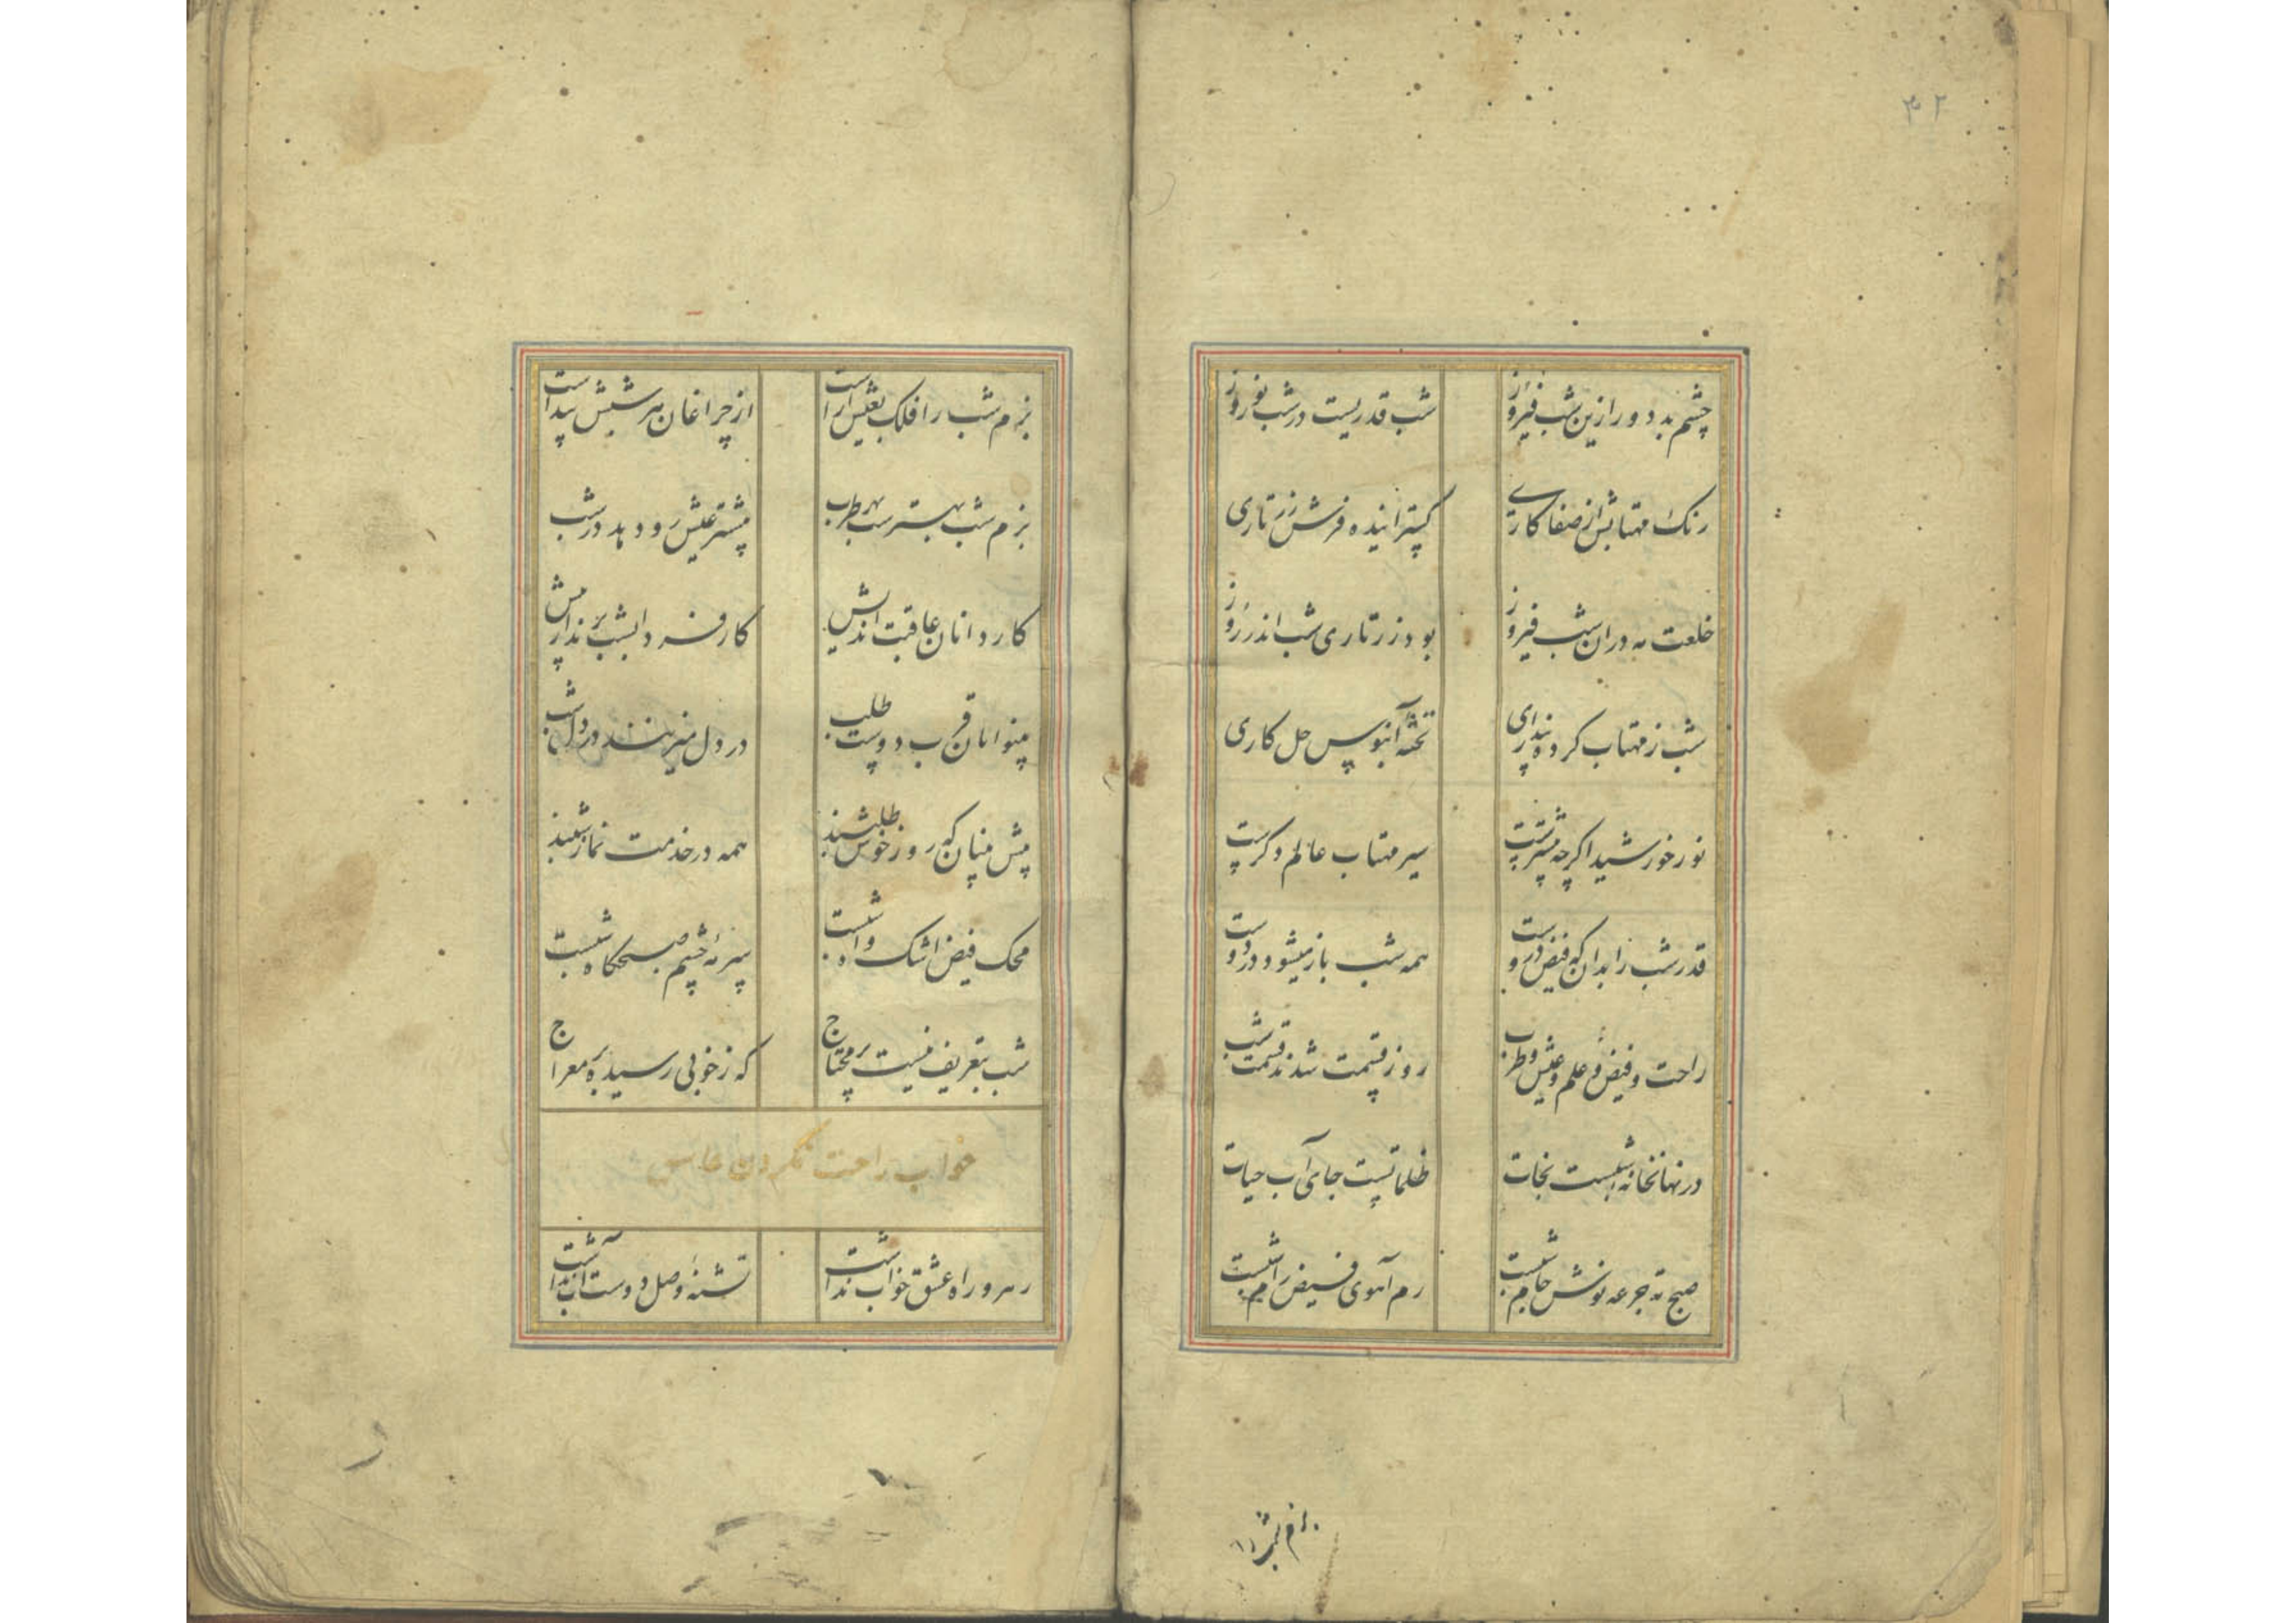 ۴۲
چشم بد دور ازین شب فیروز شب قدریست در شب نوروز
رنک مهتابش از صفا کاری کسترانیده فرش زرتاری
خلعت مه دران شب فیروز بود زرتاری شب اندر روز
شب ز مهتاب کرده پنداری تخته آبنوس حل کاری
نور خورشید اکرچه مشتهرست سیر مهتاب عالم دکرست
قدر شب را بدان که فیض دروست همه شب باز میشود در دوست
راحت و فیض و علم و عیش و طرب روز قسمت شدند قسمت شب
در نهانخانه شبست نجات ظلماتیست جای آب حیات
صبح ته جرعه نوش جام شبست رم آهوی فیض رام شبست
بزم شب را
بزم شب را فلک بعیش آراست از چراغان مه شبش پیداست
بزم شب بهتر سهر طرب بیشتر عیش رو دهد در شب
کاردانان عاقبت اندیش کار فردا بشب برند از پیش
بینوایان قرب دوست طلب در دل میزنند در دل شب
پیش بینان که روز خوش طلبند همه در خدمت نماز شبند
محک فیض اشک و آه شبست سرمه چشم صبحکاه شبست
شب بتعریف نیست پر محتاج که ز خوبی رسیده بر معراج
خواب راحت نکردن عاشق
رهرو راه عشق خواب نداشت تشنه وصل دوست آب نداشت